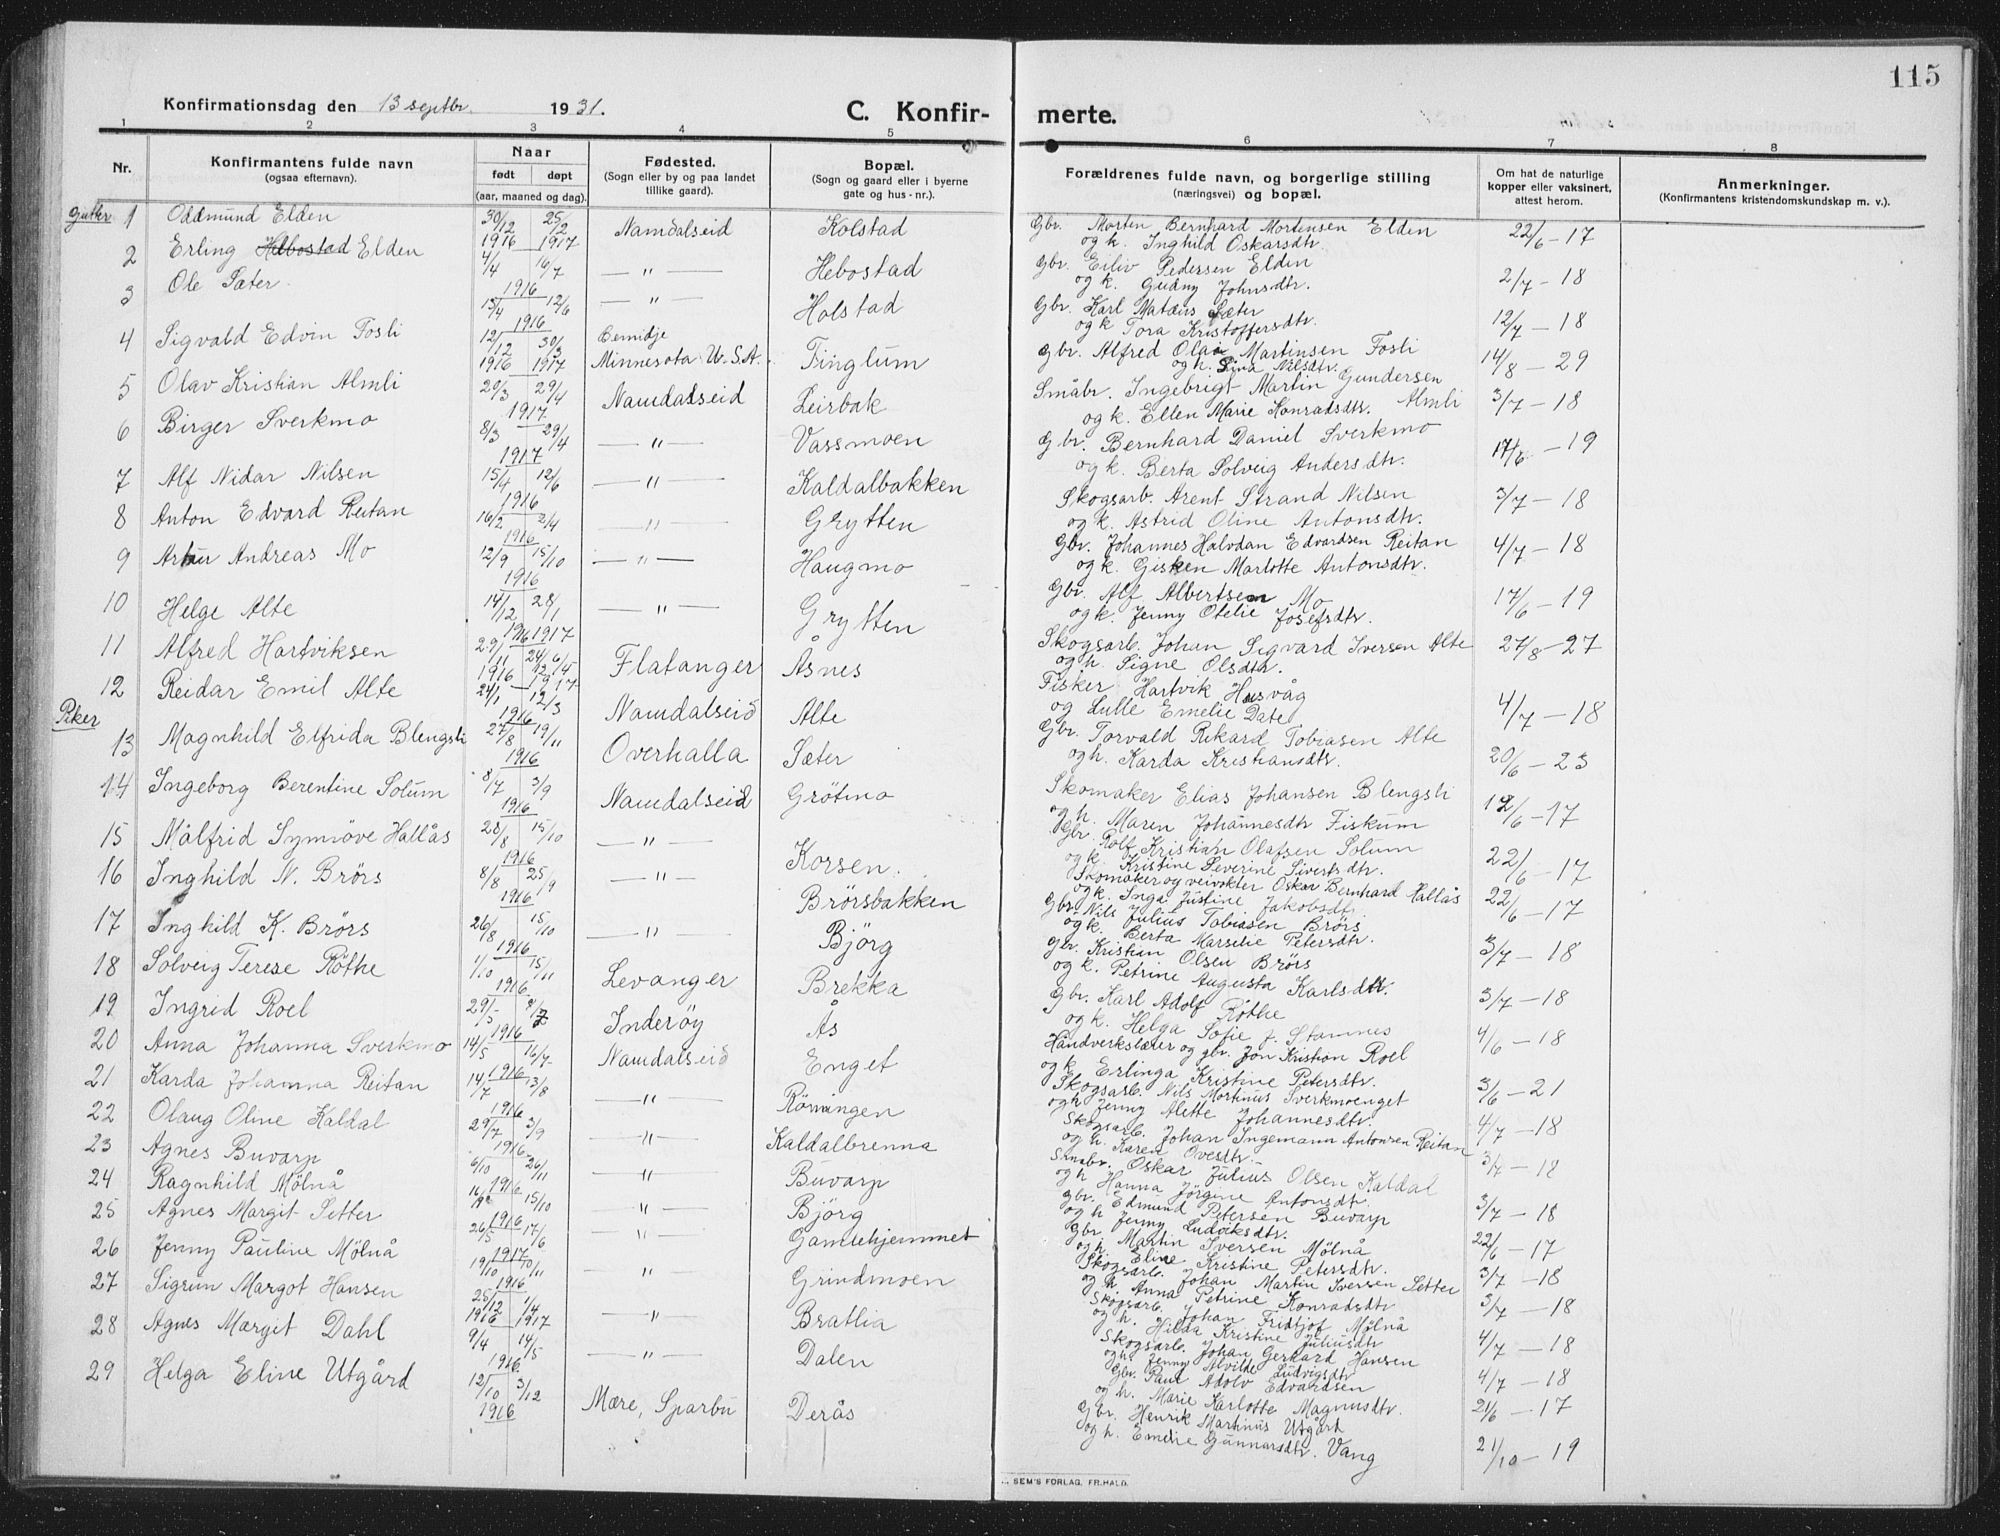 115
Konfirmationsdag den 13 septbr. 1931.
C. Konfirmerte.
1 2 3 4 5 6 7 8
Nr.
Konfirmantens fulde navn (ogsaa efternavn).
Naar født døpt (aar, maaned og dag).
Fødested. (Sogn eller by og paa landet tillike gaard).
Bopæl. (Sogn og gaard eller i byerne gate og hus-nr.).
Forældrenes fulde navn, og borgerlige stilling (næringsvei) og bopæl.
Om hat de naturlige kopper eller vaksinert, attest herom.
Anmerkninger. (Konfirmantens kristendomskundskap m. v.).
Gutter
1 Oddmund Elden 30/12 1916 25/2 1917 Namdalseid Kolstad Gbr. Morten Bernhard Mortensen Elden og h. Inghild Oskarsdtr. 22/6 - 17
2 Erling Hebostad Elden 4/4 16/7 1916 — " — Hebostad Gbr. Eiliv Pedersen Elden og k. Gudny Johnsdtr. 2/7 - 18
3 Ole Sæter 15/4 12/6 1916 — " — Holstad Gbr. Karl Matæus Sæter og k Tora Kristoffersdtr. 12/7 - 18
4 Sigvald Edvin Fosli 12/12 1916 30/3 1917 Minnesota U.S.A. Tinglum Gbr. Alfred Martinsen Fosli og h. Lina Nilsdtr. 14/8 - 29
5 Olav Kristian Almli 20/3 29/4 1917 Namdalseid Leirbak Småbr. Ingebrigt Martin Gundersen Almli og k. Ellen Marie Konradsdtr. 3/7 - 18
6 Birger Sverkmo 8/3 29/4 1917 — " — Vassmoen Gbr. Bernhard Daniel Sverkmo og k. Berta Solveig Andersdtr. 17/6 - 19
7 Alf Nidar Nilsen 15/4 12/6 1916 — " — Kaldalbakken Skogsarb. Arent Strand Nilsen og k. Astrid Oline Antonsdtr. 3/7 - 18
8 Anton Edvard Reitan 16/2 2/4 1916 — " — Grytten Gbr. Johannes Halvdan Edvardsen Reitan og k. Gisken Marlotte Antonsdtr. 4/7 - 18
9 Artur Andreas Mo 12/9 15/10 1916 — " — Haugmo Gbr. Alf Albertsen Mo og k. Jenny Otelie Josefsdtr. 17/6 - 19
10 Helge Alte 14/12 1916 28/1 1917 — " — Grytten Skogsarb. Johan Sigvard Iversen Alte og h. Signe Olsdtr. 27/8 - 27
11 Alfred Hartviksen 29/11 1916 Flatanger Åsnes Fisker Hartvik Husvåg og Lulle Emelie Date 4/7 - 18
12 Reidar Emil Alte 24/1 12/3 1916 Namdalseid Alte Gbr. Torvald Rikard Tobiasen Alte og h. Karda Kristiansdtr. 20/6 - 23
Piker
13 Magnhild Elfrida Blengsli 27/8 19/11 1916 Overhalla Sæter Skomaker Elias Johansen Blengsli og h. Maren Johannesdtr Fiskum 12/6 - 17
14 Ingeborg Berentine Solum 8/7 3/9 1916 Namdalseid Grötmo Gbr. Rolf Kristian Olafsen Solum og k. Kristine Severine Sivertsdtr. 22/6 - 17
15 Målfrid Synnöve Hallås 28/8 15/10 1916 — " — Korsen. Skomaker og veivokter Oskar Bernhard Hallås og k. Inga Justine Jakobsdtr 22/6 - 17
16 Inghild N. Brörs 8/8 25/9 1916 — " — Brörsbakken Gbr. Nils Julius Tobiasen Brörs og k. Berta Marselie Petersdtr. 3/7 - 18
17 Inghild K. Brörs 26/8 15/10 1916 — " — Björg Gbr. Kristian Olsen Brörs og k. Petrine Augusta Karlsdtr. 3/7 - 18
18 Solveig Terese Röthe 1/10 15/11 1916 Levanger Brekka Gbr. Karl Adolf Röthe og k. Helga Sofie J. Stamnes 4/6 - 18
19 Ingrid Roel 29/5 1916 Inderöy Ås Håndverkslærer og gbr. Jon Kristian Roel og k Erlinga Kristine Petersdtr. 3/6 - 21
20 Anna Johanna Sverkmo 14/5 16/7 1916 Namdalseid Enget Skogsarb. Nils Martinus Sverkmoenget og h Jenny Alette Johannesdtr. 4/7 - 18
21 Karda Johanna Reitan 14/7 13/8 1916 — " — Römingen Skogsarb. Johan Ingemann Antonsen Reitan og h. Karen Ovesdtr. 3/7 - 18
22 Olaug Oline Kaldal 29/7 3/9 1916 — " — Kaldalbrenna Småbr. Oskar Julius Olsen Kaldal og h Hanna Jörgine Antonsdtr. 3/7 - 18
23 Agnes Buvarp 6/10 26/11 1916 — " — Buvarp Gbr. Edmund Petersen Buvarp og h Jenny Ludviksdtr. 22/6 - 17
24 Ragnhild Mölnå 15/10 1916 — " — Björg Gbr. Martin Iversen Mölnå og h. Eline Kristine Petersdtr. 3/7 - 18
25 Agnes Margit Setter 26/5 17/6 1917 — " — Gamlehjemmet Skogsarb. Johan Martin Iversen Setter og h Anna Petrine Konradsdtr 3/7 - 18
26 Jenny Pauline Mölnå 19/10 10/11 1916 — " — Grindmoen Skogsarb. Johan Fridtjof Mölnå og h. Hilda Kristine Juliusdtr 4/7 - 18
27 Sigrun Margot Hansen 25/12 1916 1/4 1917 — " — Bratlia Skogsarb. Johan Gerhard Hansen og h. Jenny Alvilde Ludvigsdtr 4/7 - 18
28 Agnes Margit Dahl 9/4 14/5 1916 — " — Dalen Gbr. Paul Adolv Edvardsen og h. Marie Karlotte Magnusdtr. 21/6 - 17
29 Helga Eline Utgård 12/10 3/12 1916 Mære, Sparbu Derås Gbr. Henrik Martinus Utgård og h. Emelie Gunnarsdtr. Vang 21/10 - 19
SEM'S FORLAG. FR.HALD.